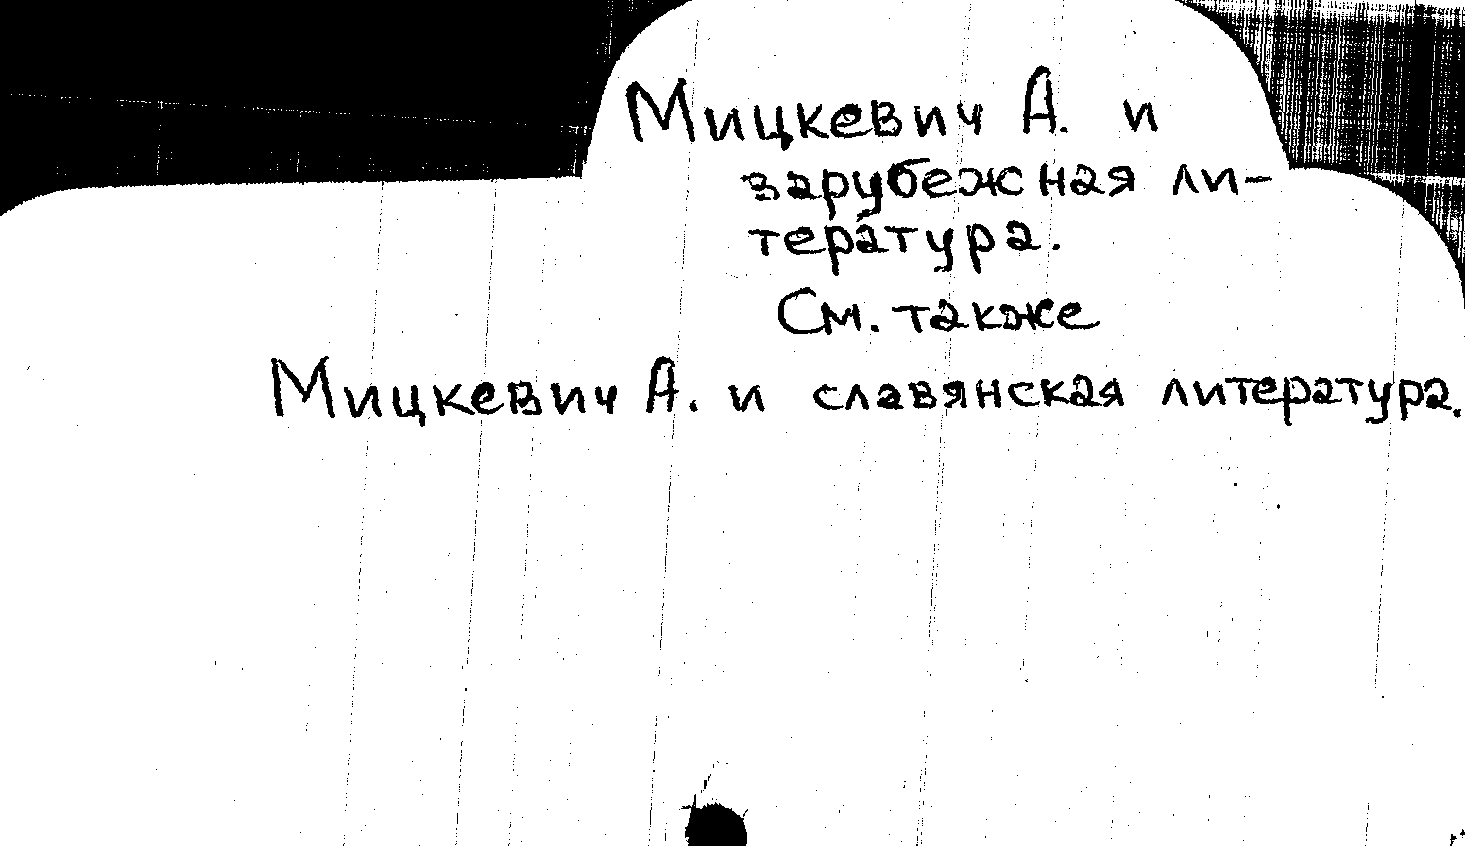 Мицкевич А. и
зарубежная ли-
тература.
См. также
Мицкевич А. и славянская литература.